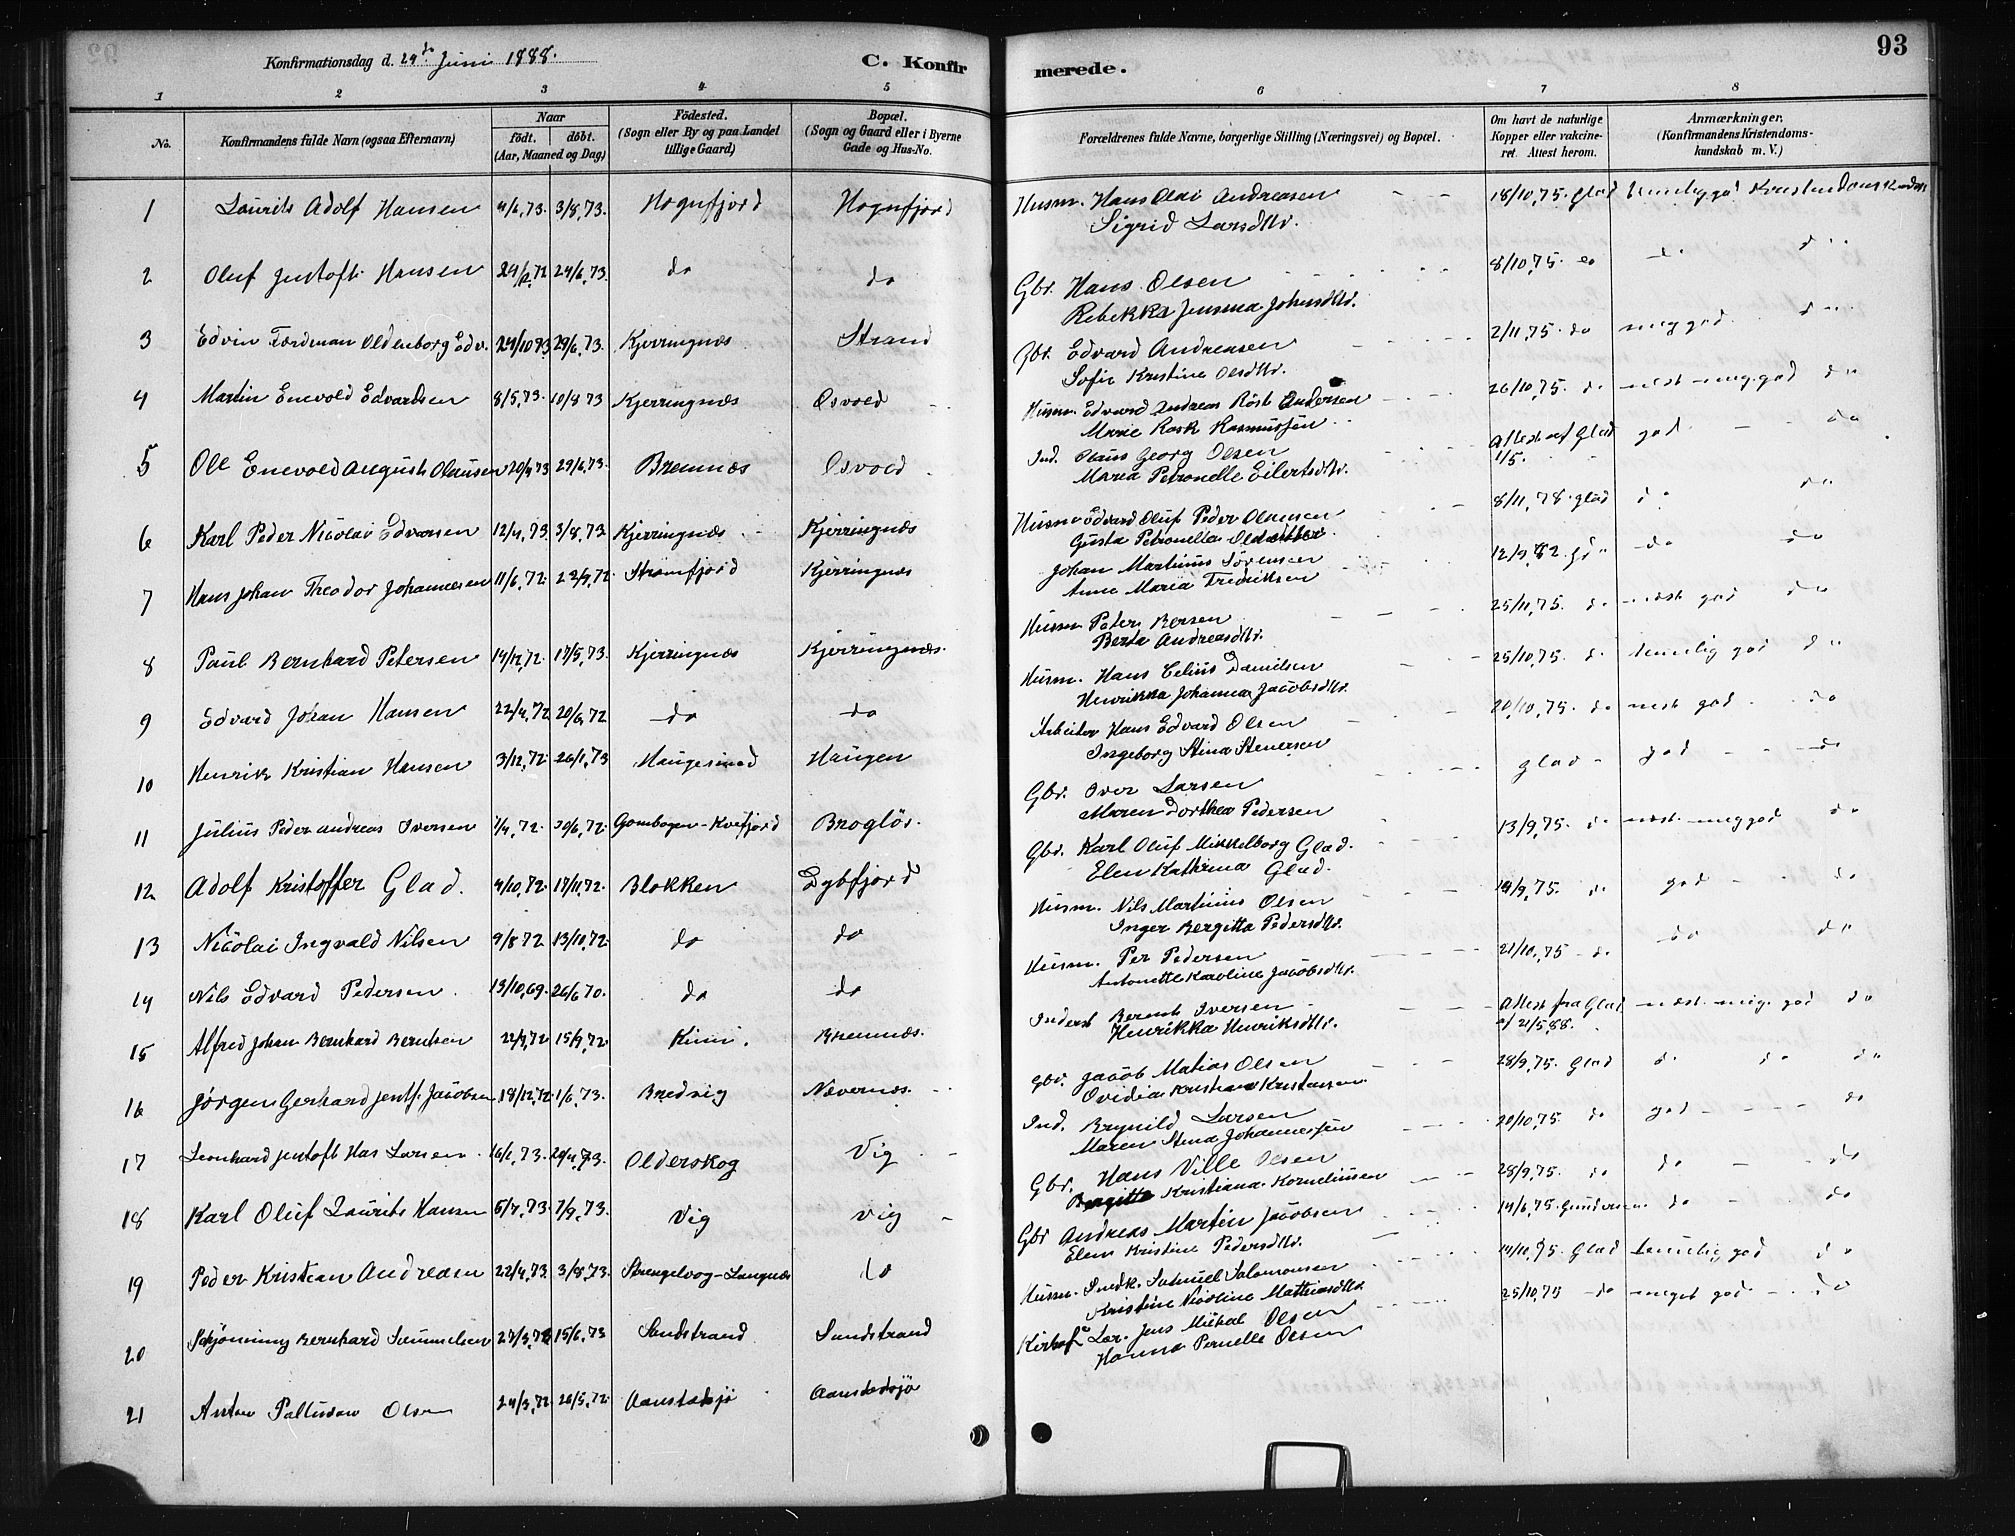 93
Konfirmationsdag d. 24de Juni 1888.
C. Konfirmerede.
1 2 3 4 5 6 7 8
No.
Konfirmandens fulde Navn (ogsaa Efternavn)
Naar
födt. döbt.
(Aar, Maaned og Dag)
Födested.
(Sogn eller By og paa Landet
tillige Gaard)
Bopæl.
(Sogn og Gaard eller i Byerne
Gade og Hus-No.
Forældrenes fulde Navne, borgerlige Stilling (Næringsvei) og Bopæl.
Om havt de naturlige
Kopper eller vakcine-
ret. Attest herom.
Anmærkninger.
(Konfirmandens Kristendoms-
kundskab m. V.)
1 Laurits Adolf Hansen 4/6,73. 3/8,73. Hognfjord Hognfjord Husm. Hans Olai Andreasen 18/10,75. Glad temelig god Kristendomskundsk.
Sigrid Larsdttr.
2 Oluf Jentoft Hansen 24/6,73. do do Gbr. Hans Olsen 8/10,75. do do
Rebekka Jensina Johnsdttr.
3 Edvin Ferdinan Oldenborg Edv. 29/6,73. Kjerringnæs Strand Gbr. Edvard Andreasen 2/11,75. do meg god do
Sofie Kristine Olsdttr.
4 Martin Enevold Edvardsen 8/5,73. 10/8 73 Kjerringnæs Osvold Husm. Edvard Andreas Röst Andersen 26/10,75. do næst meg. god do
Marie Rask Rasmussen
5 Ole Enevold August Olausen 20/4 73 29/6,73. Bremnæs Osvold Ind. Olaus Georg Olsen Attest af Glad 1/5. god do
Maria Petronelle Eilertsdttr.
6 Karl Peder Nicolai Edvarsen 12/4,73 3/8,73 Kjerringnæs Kjerringnæs Husm. Edvard Oluf Peder Olausen 8/11,78. glad do do
Gusta Petronella Olsdatter
7 Hans Johan Theodor Johannesen 11/6,72. 22/9,72. Strømfjord Kjerringnæs Johan Martinus Sørensen 12/9,82. do do
Anne Maria Fredriksen
8 Paul Bernhard Petersen 14/12,72. 17/5,73. Kjerringnæs Kjerringnæs. Husm. Peter Bersen 25/11,75. do næst god do
Berta Andreasdttr.
9 Edvard Johan Hansen 22/4,72 20/6,72 do do Husm. Hans Celius Danielsen 25/10,75. do temelig god do
Henrikka Johanna Jacobsdttr.
10 Henrik Kristian Hansen 3/12,72. 26/1,73 Haugesund Haugen Arbeider Hans Edvard Olsen 20/10,75. do næst god do
Ingeborg Stina Stenersen
11 Julius Peder Andreas Iversen 7/4,72. 30/6,72. Gombogen-Kvefjord Brogløs. Gbr. Iver Larsen glad god do
Maren Dorthea Pedersen
12 Adolf Kristoffer Glad. 4/10,72. 17/11,72. Blokken Dybfjord Gbr. Karl Oluf Mikkelborg Glad. 13/9,75. do næst meg god do
Elen Kathrina Glad.
13 Nicolai Ingvald Nilsen 9/8 72 13/10,72. do do Husm. Nils Martinus Olsen 14/9,75. do god do
Inger Bergitta Pedersdttr.
14 Nils Edvard Pedersen. 13/10,69. 26/6 70. do do Husm. Per Pedersen 21/10,75 do do do
Antonette Karoline Jacobsdttr.
15 Alfred Johan Bernhard Berntsen 22/7,72 15/9,72. Kinn. Bremnæs. Inderst Bernt Iversen Attest fra Glad af 21/5,88. næst. meg. god do
Henrikka Henriksdttr.
16 Jørgen Gerhard Jentf. Jacobsen 18/12,72. 1/6,73. Bredvig Nævernæs. Gbr. Jacob Matias Olsen 28/9,75. Glad do do do
Ovidia Kristiane Kristensen
17 Leonhard Jentoft Has Larsen 16/1,73. 20/4,73. Olderskog Vig Ind. Brynild Larsen 20/10,75. do god do
Maren Stina Johannessen
18 Karl Oluf Laurits Hansen 5/7,73. 7/9,73. Vig Vig Gbr. Hans Ville Olsen 28/9,75. do do do
Bergitte Kristiana Korneliussen
19 Peder Kristian Andreasen 22/4,73. 3/8,73. Strengelvog-Langnæs do Gbr Andreas Martin Jacobsen 14/6,75. Gundersen do do
Elen Kristine Pedersdttr.
20 Schjønning Bernhard Samuelsen 15/6,73 Sandstrand Sandstrand Husm. Samuel Salomonsen 14/10,75. Glad temelig god do
Kristine Nicoline Mathiasdttr.
21 Anton Palludan Olsen 24/3,72 26/5,72. Aanstadsjø Aanstadsjø Jens Mikal Olsen 25/10,75 do meget god do
Hanna Pernelle Olsen